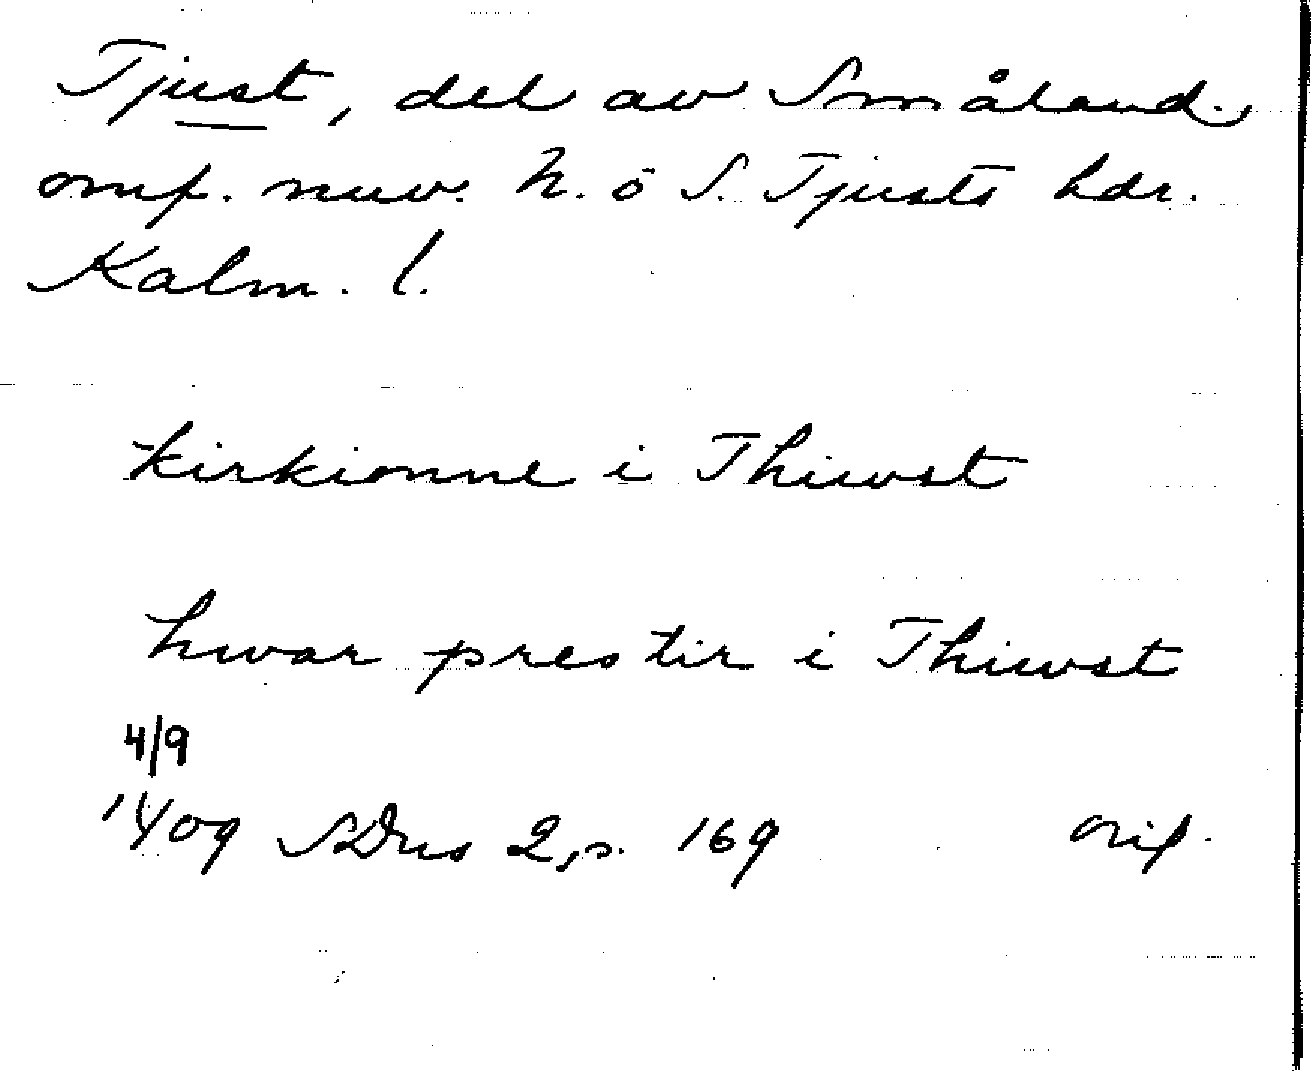 Tjust, del av Småland.
omf. nuv. N. o S. Tjusts hdr.
Kalm. l.
kirkionne i Thiwst
hwar prestir i Thiwst
4/9
1409 SDns 2, s. 169 orig.